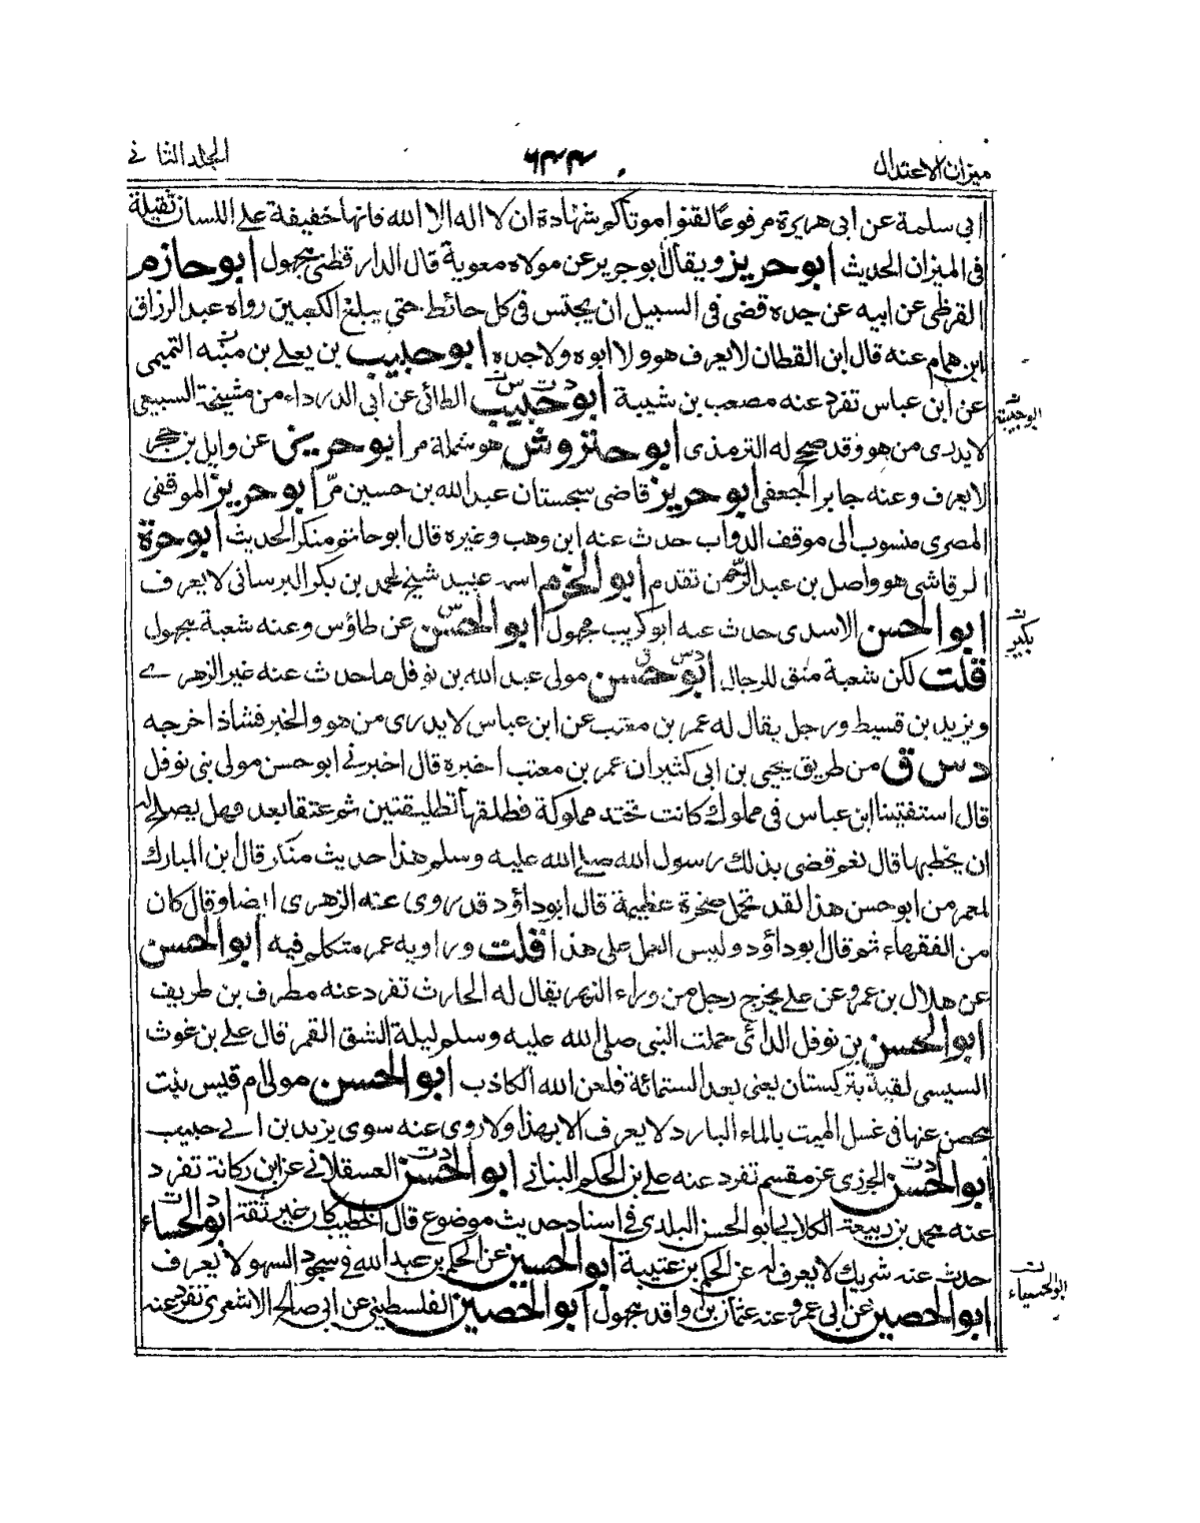 ميزان الاعتدال
٦٤٤
المجلد الثاني
ابي سلمة عن ابي هريرة مرفوعا لقنوا موتاكم شهادة ان لا اله الا الله فانها خفيفة على اللسان ثقيلة
في الميزان الحديث ابو حريز ويقال ابو جرير عن مولاه معوية قال الدار قطني مجهول ابو حازم
القرظي عن ابيه عن جده قضى في السبيل ان يحتبس في كل حائط حتى يبلغ الكعبين رواه عبد الرزاق
ابن همام عنه قال ابن القطان لا يعرف هو ولا ابوه ولا جده ابو حبيب بن يعلے بن منبه التميمي
عن ابن عباس تفرد عنه مصعب بن شيبة ابو حبيب الطائي عن ابي الدرداء من مشيخة السبيعي
لا يدرى من هو وقد صحح له الترمذي ابو حتروش هو شملة مر ابو حريز عن وايل بن حجر
لا يعرف وعنه جابر الجعفي ابو حريز قاضي سجستان عبد الله بن حسين مرّ ابو حريز الموقفي
المصري منسوب الى موقف الدواب حدث عنه ابن وهب وغيره قال ابو حاتم منكر الحديث ابو حرة
الرقاشي هو واصل بن عبد الرحمن تقدم ابو الخزم اسمه عبيد شيخ لمحمد بن بكر البرساني لا يعرف
ابو الحسن الاسدي حدث عنه ابو كريب مجهول ابو الحسن عن طاؤس وعنه شعبة مجهول
قلت لكن شعبة منق للرجال ابو حسن مولى عبد الله بن نوفل ما حدث عنه غير الزهرے
ويزيد بن قسيط ورجل يقال له عمر بن معتب عن ابن عباس لا يدرى من هو والخبر فشاذ اخرجه
د س ق من طريق يحيى بن ابي كثير ان عمر بن معتب اخبره قال اخبرني ابو حسن مولى بني نوفل
قال استفتينا ابن عباس في مملوك كانت تحته مملوكة فطلقها تطليقتين ثم عتقا بعد فهل يصلح له
ان يخطبها قال نعم قضى بذلك رسول الله صلے الله عليه وسلم هذا حديث منكر قال ابن المبارك
لمعمر من ابو حسن هذا لقد تحمل صخرة عظيمة قال ابو داؤد قد روى عنه الزهري ايضا وقال كان
من الفقهاء ثم قال ابو داؤد وليس العمل على هذا قلت وراويه عمر متكلم فيه ابو الحسن
عن هلال بن عمرو عن علے يخرج رجل من وراء النهر يقال له الحارث تفرد عنه مطرف بن طريف
ابو الحسن بن نوفل الداعي حملت النبي صلى الله عليه وسلم ليلة الشق القمر قال علے بن غوث
السيسي لقيته بتركستان يعني بعد الستمائة فلعن الله الكاذب ابو الحسن مولى ام قيس بنت
محصن عنها في غسل الميت بالماء البارد لا يعرف الا بهذا ولا روى عنه سوى يزيد بن ابے حبيب
ابو الحسن الجزري عن مقسم تفرد عنه علے بن الحكم البناني ابو الحسن العسقلاني عن ابن ركانة تفرد
عنه محمد بن ربيعة الكلابي ابو الحسن البلدي في اسناد حديث موضوع قال الخطيب كان غير ثقة ابو الحسناء
حدث عنه شريك لا يعرف له عن الحكم بن عتيبة ابو الحسين عن الحكم بن عبد الله في سجود السهو لا يعرف
ابو الحصين عن ابي عمرو عنه عثمان بن واقد مجهول ابو الحصين الفلسطيني عن ابي صالح الاشعري تفرد عنه